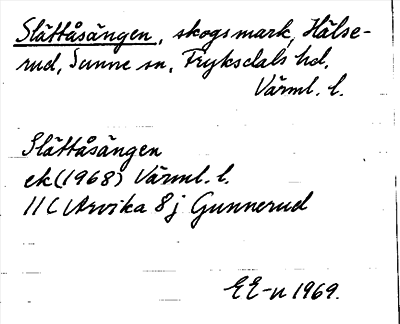 Slättåsängen, skogsmark, Hälse-
rud, Sunne sn, Fryksdals hd.
Värml. l.
Slättåsängen
ek (1968) Värml. l.
11 C Arvika 8 j Gunnerud
EE-n 1969.